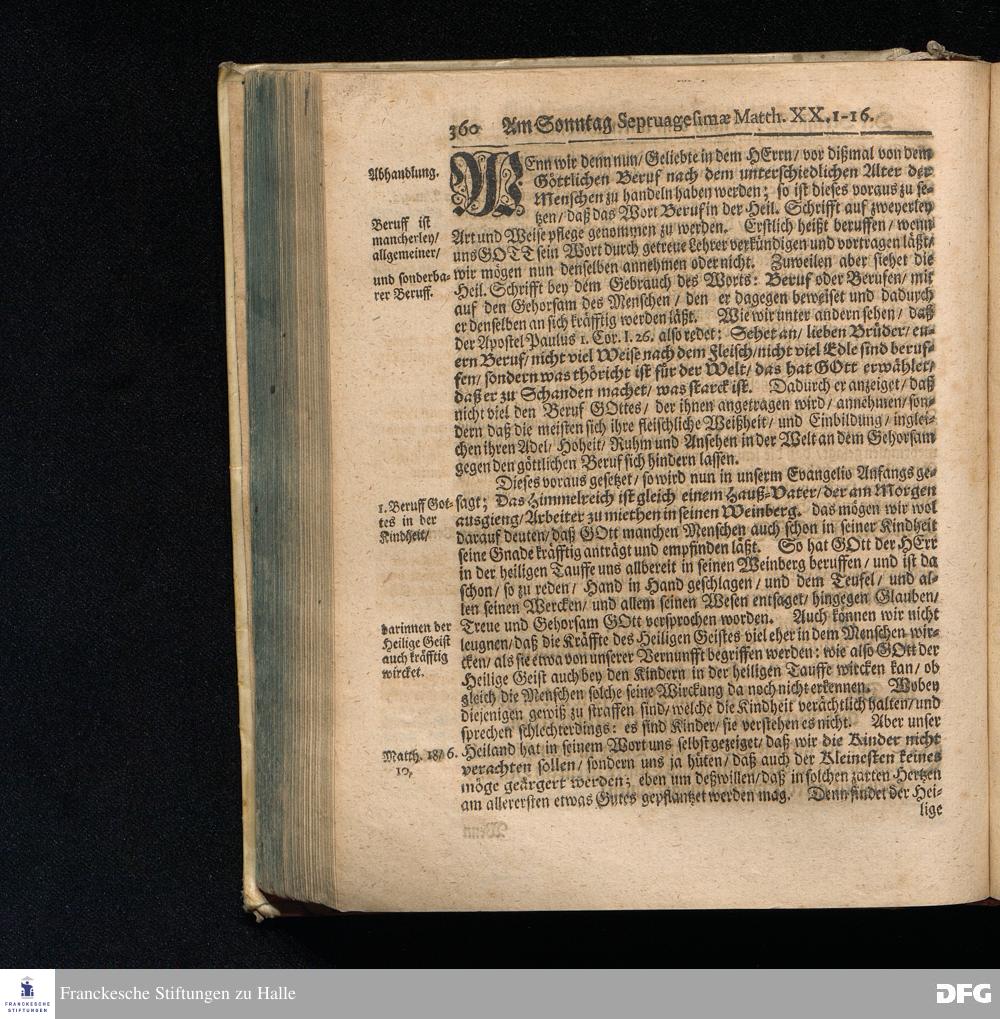 360 Am Sonntag Septuagesimæ Matth. XX, 1-16.
Abhandlung.
WEnn wir denn nun/ Geliebte in dem HErrn/ vor dißmal von dem
Göttlichen Beruf nach dem unterschiedlichen Alter der
Menschen zu handeln haben werden; so ist dieses voraus zu se-
tzen/ daß das Wort Beruf in der Heil. Schrifft auf zweyerley
Art und Weise pflege genommen zu werden. Erstlich heißt beruffen/ wenn
uns GOTT sein Wort durch getreue Lehrer verkündigen und vortragen läßt/
wir mögen nun denselben annehmen oder nicht. Zuweilen aber siehet die
Heil. Schrifft bey dem Gebrauch des Worts: Beruf oder Berufen/ mit
auf den Gehorsam des Menschen/ den er dagegen beweiset und dadurch
er denselben an sich kräfftig werden läßt. Wie wir unter andern sehen/ daß
der Apostel Paulus 1. Cor. I. 26. also redet: Sehet an/ lieben Brüder/ eu-
ern Beruf/ nicht viel Weise nach dem Fleisch/ nicht viel Edle sind beruf-
fen/ sondern was thöricht ist für der Welt/ das hat GOtt erwählet/
daß er zu Schanden machet/ was starck ist. Dadurch er anzeiget/ daß
nicht viel den Beruf GOttes/ der ihnen angetragen wird/ annehmen/ son-
dern daß die meisten sich ihre fleischliche Weißheit/ und Einbildung/ inglei-
chen ihren Adel/ Hoheit/ Ruhm und Ansehen in der Welt an dem Gehorsam
gegen den göttlichen Beruf sich hindern lassen.
Beruff ist
mancherley/
allgemeiner/
und sonderba-
rer Beruff.
Dieses voraus gesetzet/ so wird nun in unserm Evangelio Anfangs ge-
sagt; Das Himmelreich ist gleich einem Hauß-Vater/ der am Morgen
ausgieng/ Arbeiter zu miethen in seinen Weinberg. das mögen wir wol
darauf deuten/ daß GOtt manchen Menschen auch schon in seiner Kindheit
seine Gnade kräfftig anträgt und empfinden läßt. So hat GOtt der HErr
in der heiligen Tauffe uns allbereit in seinen Weinberg beruffen/ und ist da
schon/ so zu reden/ Hand in Hand geschlagen/ und dem Teufel/ und al-
len seinen Wercken/ und allem seinen Wesen entsaget/ hingegen Glauben/
Treue und Gehorsam GOtt versprochen worden. Auch können wir nicht
leugnen/ daß die Kräffte des Heiligen Geistes viel eher in dem Menschen wir-
cken/ als sie etwa von unserer Vernunfft begriffen werden: wie also GOtt der
Heilige Geist auch bey den Kindern in der heiligen Tauffe wircken kan/ ob
gleich die Menschen solche seine Wirckung da noch nicht erkennen. Wobey
diejenigen gewiß zu straffen sind/ welche die Kindheit verächtlich halten/ und
sprechen schlechterdings: es sind Kinder/ sie verstehen es nicht. Aber unser
Heiland hat in seinem Wort uns selbst gezeiget/ daß wir die Kinder nicht
verachten sollen/ sondern uns ja hüten/ daß auch der Kleinesten keines
möge geärgert werden; eben um deßwillen/ daß in solchen zarten Hertzen
am allerersten etwas Gutes gepflantzet werden mag. Denn findet der Hei-
lige
1. Beruff Got-
tes in der
Kindheit/
darinnen der
Heilige Geist
auch kräfftig
wircket.
Matth. 18/ 6.
10.
FRANCKESCHE
STIFTUNGEN
Franckesche Stiftungen zu Halle
DFG